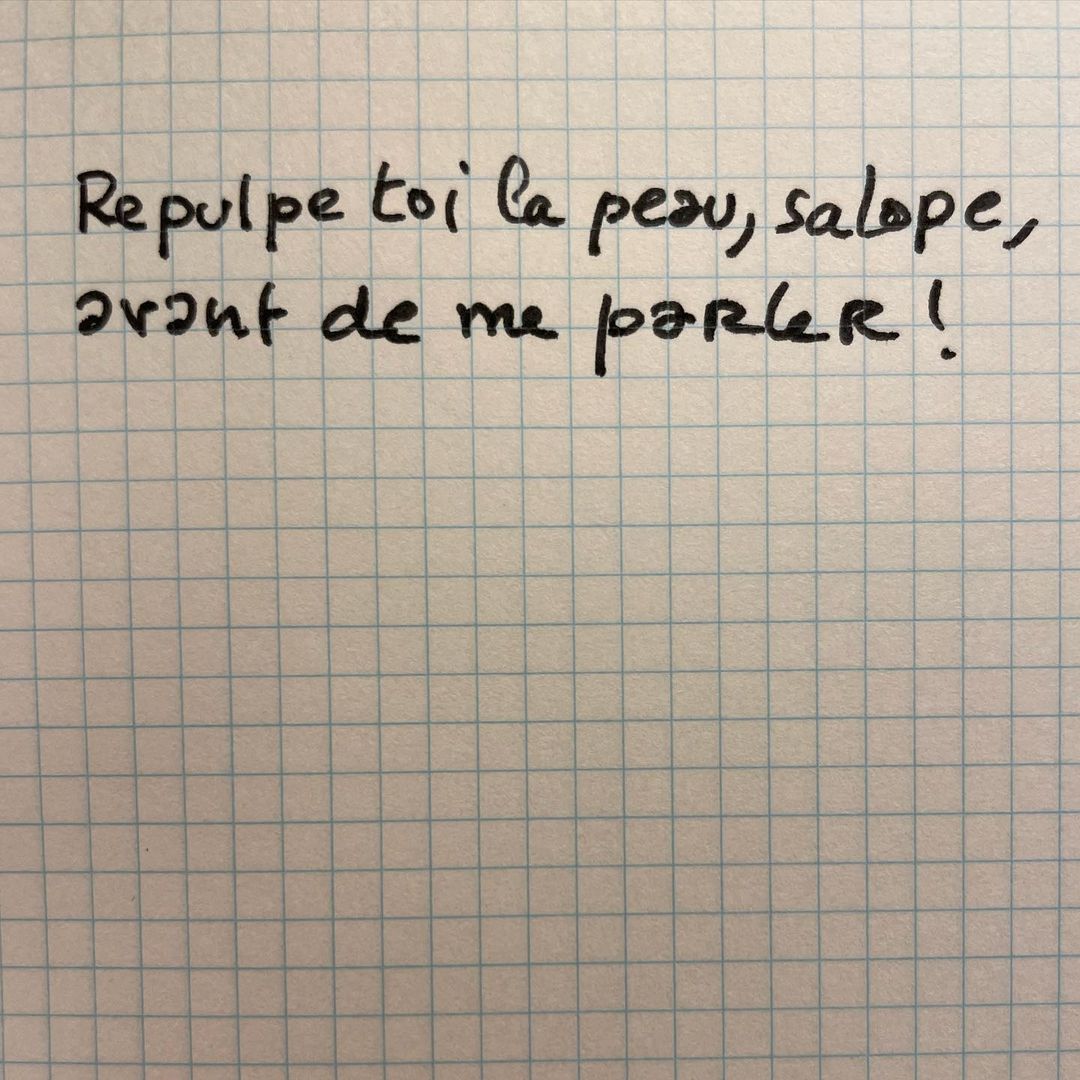 Repulpe toi la peau, salope,
avant de me parler !